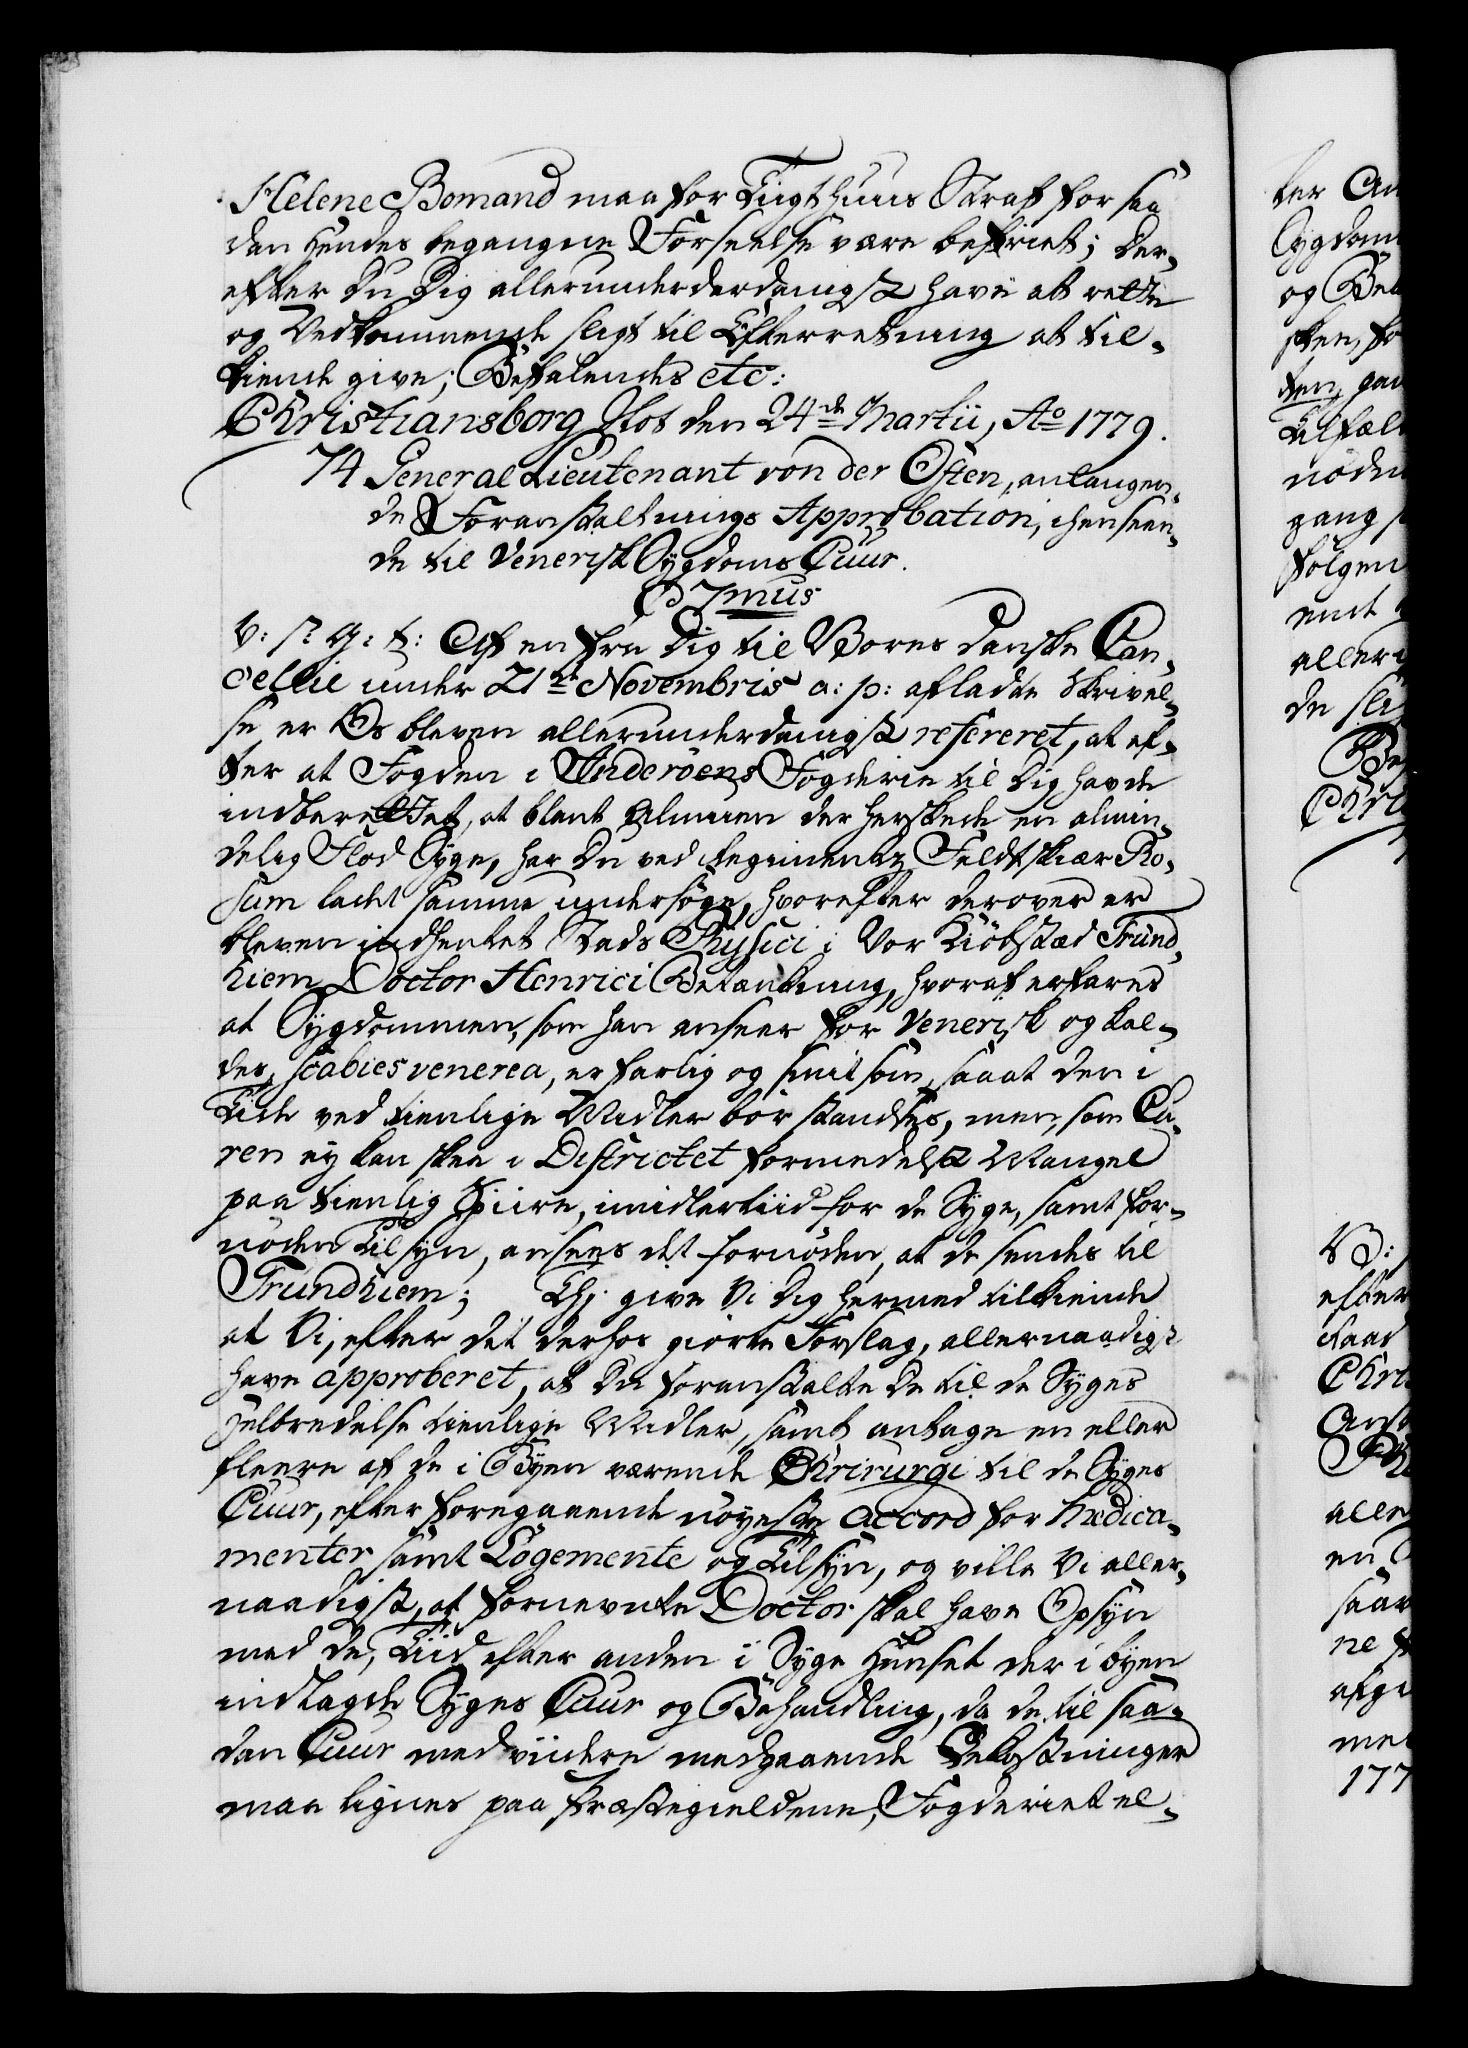 Helene Bomand maa for Tugthuus Straf for saa
dan hendes begangne Forseelse være befriet; Der-
efter Du Dig allerunderdanigst have at rette
og Vedkommende sligt til Efterretning at til-
kiende give; Befalendes etc:
Christiansborg Slot den 24de Martii, Ao 1779.
74 General Lieutenant von der Osten, anlangen-
de Foranstaltnings Approbation, i henseen-
de til Venerisk Sygdoms Cuur.
C 7mus
V: s: G: t: Af en fra Dig til Vores Danske Can-
cellie under 21de Novembris a: p: afladte Skrivel-
se er Os bleven allerunderdanigst refereret, at ef-
ter at Fogden i Inderöens Fogderie til Dig havde
indberettet, at blant Almuen der herskede en almin-
delig Flod Syge, har Du ved Regiments Feldtskiær Ro-
sum ladet samme undersøge, hvorefter derover er
bleven indhentet Stads Physici i Vor Kiöbstæd Trund-
hiem Doctor Henrici Betænkning, hvoraf erfares
at Sygdommen, som han anseer for Venerisk og kal-
der scabies venerea, er farlig og smitsom, saa at den i
Tide ved tienlige Midler bör standses, men, som Cu-
ren ey kan skee i Districtet formedelst Mangel
paa tienlig Spiise, imidlertiid for de Syge, samt for-
nöden Tilsyn, ansees det fornöden, at de sendes til
Trundhiem; Thi give Vi Dig hermed tilkiende
at Vi, efter det derhos giorte Forslag, allernaadigst
have approberet, at Du foranstalte de til de Syges
helbredelse tienlige Midler, samt antage en eller
fleere af de i Byen værende Chirurgi til de Syges
Cuur, efter foregaaende nöyeste accord for Medica-
menter samt Logemente og Tilsyn, og ville Vi aller-
naadigst, at fornevnte Doctor skal have Opsyn
med de, Tiid efter anden i Syge Huuset der i byen
indlagde Syges Cuur og Behandling, da de til saa-
dan Cuur med viidere medgaaende Bekostninger
maa lignes paa Præstegieldene, Fogderiet el-